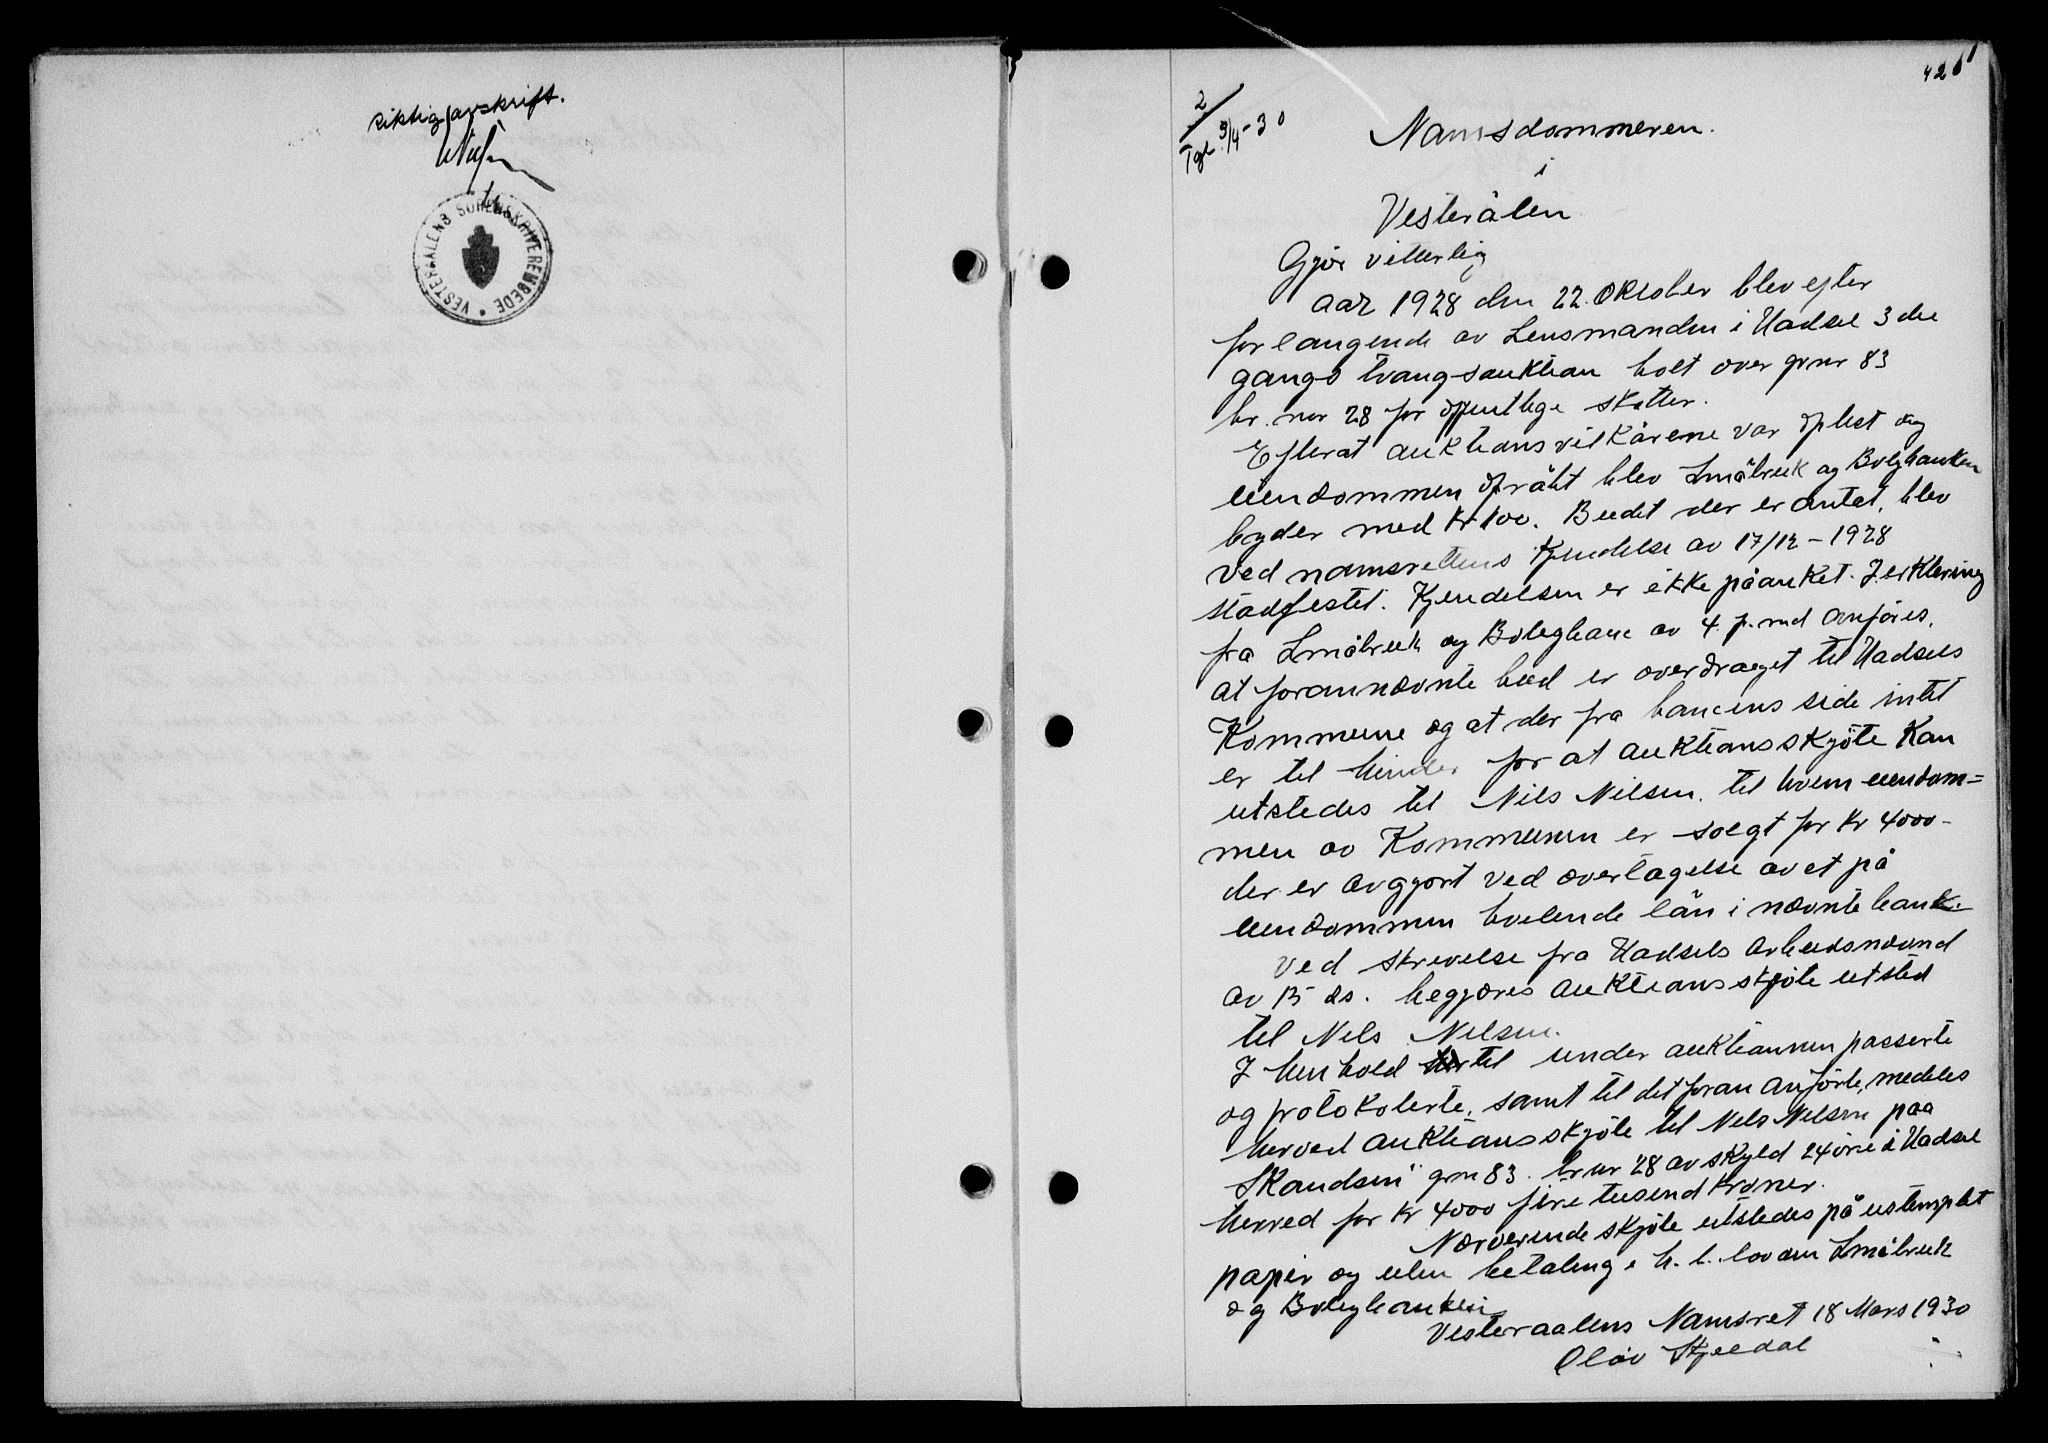 riktig avskrift.
VESTERAALENS SORENSKRIVEREMBEDE
420
2
Tgl. 3/4-30
Namsdommeren.
i
Vesterålen
Gjör vitterlig
aar 1928 den 22. Oktober blev efter
forlangende av Lensmanden i Hadsel 3die
gangs tvangsauktion holt over grnr 83
br. nr 28 for offentlige skatter.
Efterat auktionsvilkårene var oplest og
eiendommen opråbt blev Småbruk og Boligbanken
byder med kr 100. Budet der er antat, blev
ved namsrettens Kjendelse av 17/12 - 1928
stadfestet. Kjendelsen er ikke påanket. I erklæring
fra Småbruk og Boligbank av 4. p. md anföres,
at forannævnte bud er overdraget til Hadsels
Kommune og at der fra bankens side intet
er til hinder for at auktionsskjöte Kan
utstedes til Nils Nilsen. til hvem eiendom=
men av Kommunen er solgt for kr 4000-
der er avgjort ved overtagelse av et på
eiendommen hvilende lån i nævnte bank.
Ved skrivelse fra Hadsels Arbeidsnævnd
av 15 ds. begjæres auktionsskjöte utsted
til Nils Nilsen.
I henhold til under auktionnen passerte
og protokolerte, samt til det foran anförte, meddeles
herved auktionsskjöte til Nils Nilsen paa
"Skandsen" grn 83. br nr 28 av skyld 24 öre i Hadsel
herred for kr 4000 fire tusend kroner.
Nærværende skjöte utstedes på ustemplet
papir og uten betaling i h. t. lov om Småbruk
og Boligbanken
Vesteraalens Namsret 18 Mars 1930
Olav Skjeldal